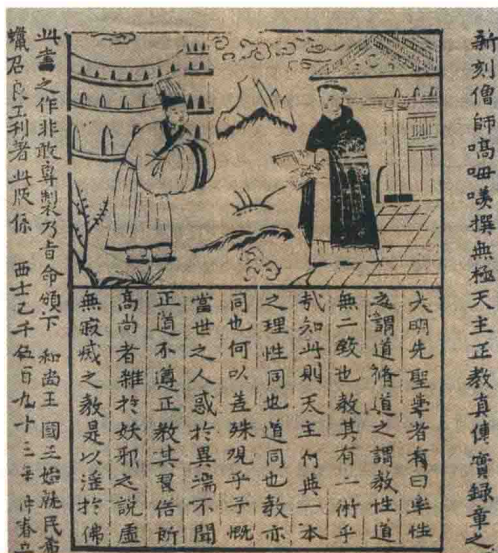 新刻僧師嗃呣𠺝撰無極天主正教真傳實錄章之
大明先聖學者有曰率性
之謂道脩道之謂教性道
無二致也教其有二術乎
哉知此則天主付與一本
之理性同也道同也教亦
同也何以差殊觀乎予慨
當世之人惑於異端不聞
正道不遵正教其習俗所
高尚者雜於妖邪之說虛
無寂滅之教是以淫於佛
此書之作非敢專製乃旨命頒下 和尚王 國王始就民希
蠟召良工刊著此版係 西士乙千伍百九十三年仲春立